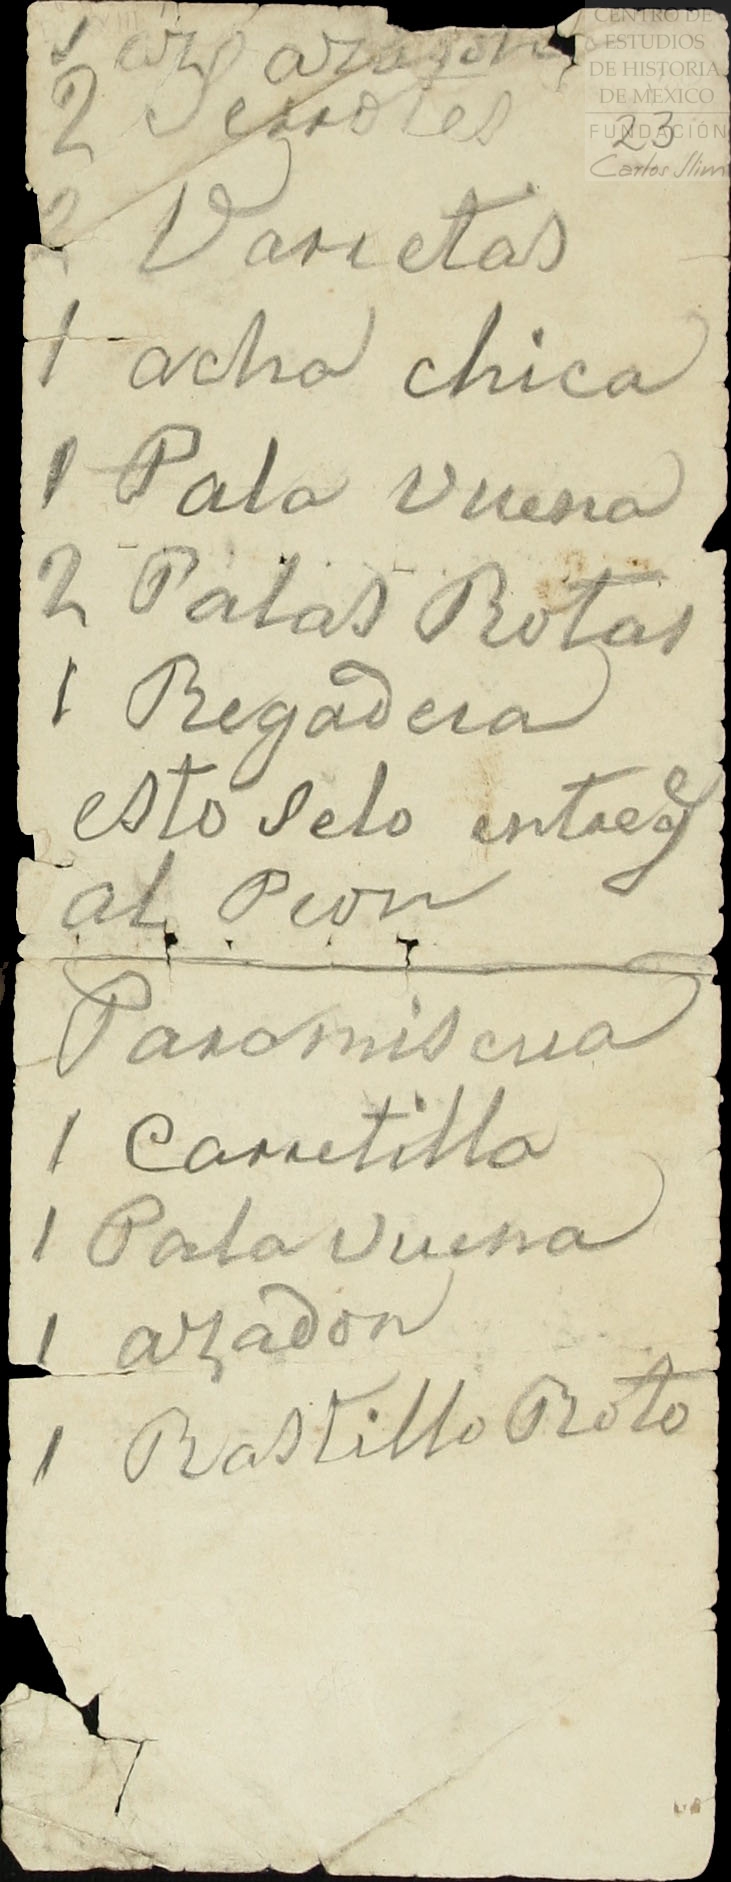 CENTRO DE
ESTUDIOS
DE HISTORIA
DE MEXICO
FUNDACIÓN
Carlos Slim
23
1
2 Serrotes
2 Varietas
1 acha chica
1 Pala vuena
2 Palas Rotas
1 Regadera
esto selo entreg
al Peon
Paramiscua
1 Carretilla
1 Pala vuena
1 azadon
1 Rastillo Roto